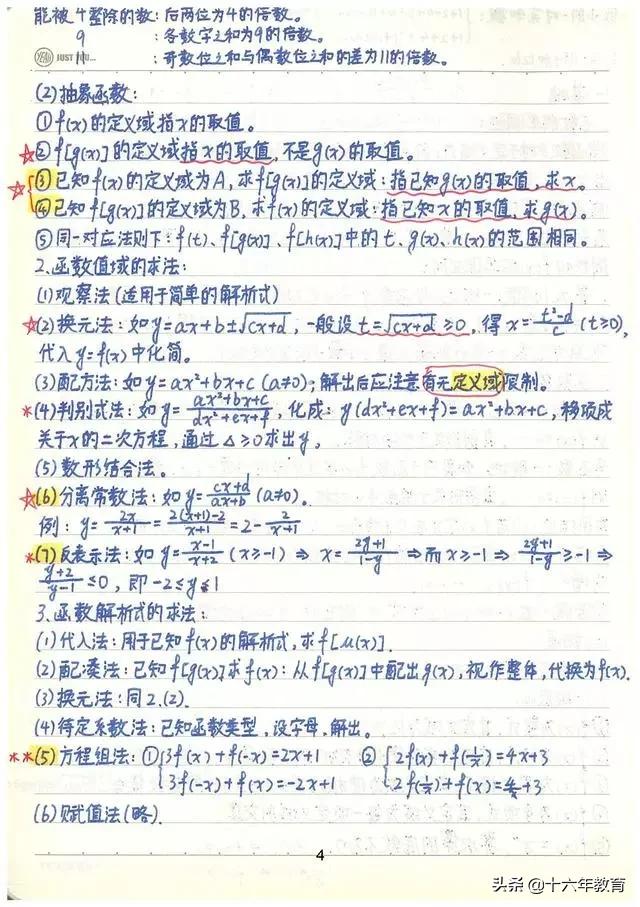 能被4整除的数:后两位为4的倍数。
9 :各数字之和为9的倍数。
JUST YOU... 11 :奇数位之和与偶数位之和的差为11的倍数。
(2)抽象函数:
①f(x)的定义域指x的取值。
☆②f[g(x)]的定义域指x的取值,不是g(x)的取值。
☆③已知f(x)的定义域为A,求f[g(x)]的定义域:指已知g(x)的取值,求x。
④已知f[g(x)]的定义域为B,求f(x)的定义域:指已知x的取值,求g(x)。
⑤同一对应法则下:f(t)、f[g(x)]、f[h(x)]中的t、g(x)、h(x)的范围相同。
2.函数值域的求法:
(1)观察法(适用于简单的解析式)
☆(2)换元法:如y=ax+b±√(cx+d),一般设t=√(cx+d)≥0,得x=(t²-d)/c(t≥0),
代入y=f(x)中化简。
(3)配方法:如y=ax²+bx+c(a≠0);解出后应注意有无定义域限制。
*(4)判别式法:如y=(ax²+bx+c)/(dx²+ex+f),化成:y(dx²+ex+f)=ax²+bx+c,移项成
关于x的二次方程,通过△≥0求出y。
(5)数形结合法。
☆(6)分离常数法:如y=(cx+d)/(ax+b)(a≠0)。
例:y=2x/(x+1)=(2(x+1)-2)/(x+1)=2-2/(x+1)
*(7)反表示法:如y=(x-1)/(x+2)(x≥-1)⇒x=(2y+1)/(1-y)⇒而x≥-1⇒(2y+1)/(1-y)≥-1⇒
(y+2)/(y-1)≤0,即-2≤y<1
3.函数解析式的求法:
(1)代入法:用于已知f(x)的解析式,求f[μ(x)].
(2)配凑法:已知f[g(x)]求f(x):从f[g(x)]中配出g(x),视作整体,代换为f(x).
(3)换元法:同2.(2).
(4)待定系数法:已知函数类型,设字母,解出。
**(5)方程组法:①{3f(x)+f(-x)=2x+1 ②{2f(x)+f(1/x)=4x+3
3f(-x)+f(x)=-2x+1 2f(1/x)+f(x)=4/x+3
(6)赋值法(略).
4
头条@十六年教育